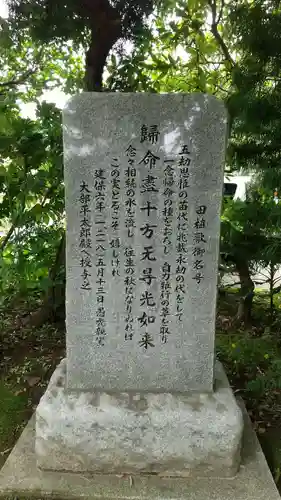 田植歌御名号
五劫思惟の苗代に兆載永劫の代をして
一念帰命の種をおろし自力雑行の草を取り
歸命盡十方无㝵光如来
念々相続の水を流し往生の秋になりぬれば
この実とるこそ嬉しけれ
建保六年(一二一八)五月十三日愚禿親鸞
大部平太郎殿へ授与之